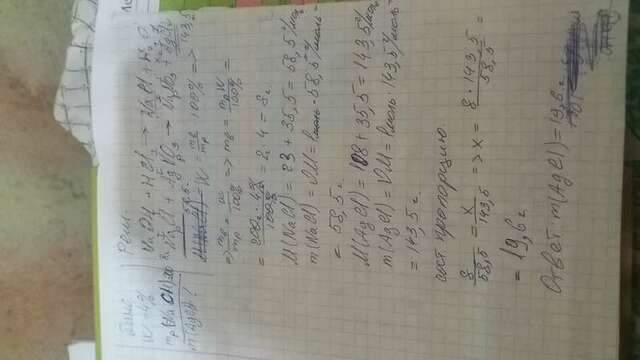 Дано
W = 4%
mр(NaOH) 200
m(AgCl) ?
Реш
NaOH + HCl → NaCl + H₂O
NaCl + AgNO₃ → NaNO₃ + AgCl
143,5
58,5
W = mв/mр · 100% =>
=> mв/mр = w/100% => mв = mр W/100% =
= 200г · 4%/100% = 2г · 4 = 8г
M(NaCl) = 23 + 35,5 = 58,5 г/моль
m(NaCl) = νM = 1моль · 58,5 г/моль =
= 58,5 г.
M(AgCl) = 108 + 35,5 = 143,5 г/моль
m(AgCl) = νM = 1моль · 143,5 г/моль =
= 143,5 г
сост пропорцию
8/58,5 = x/143,5 => x = 8 · 143,5/58,5 =
= 19,6 г
Ответ m(AgCl) = 19,6 г